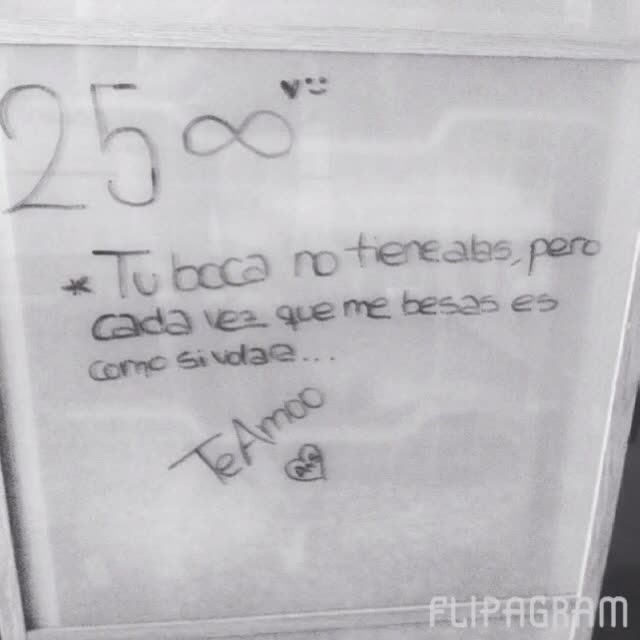 25 ∞
* Tu boca no tiene alas, pero
cada vez que me besas es
como si volara...
Te Amoo
FLIPAGRAM